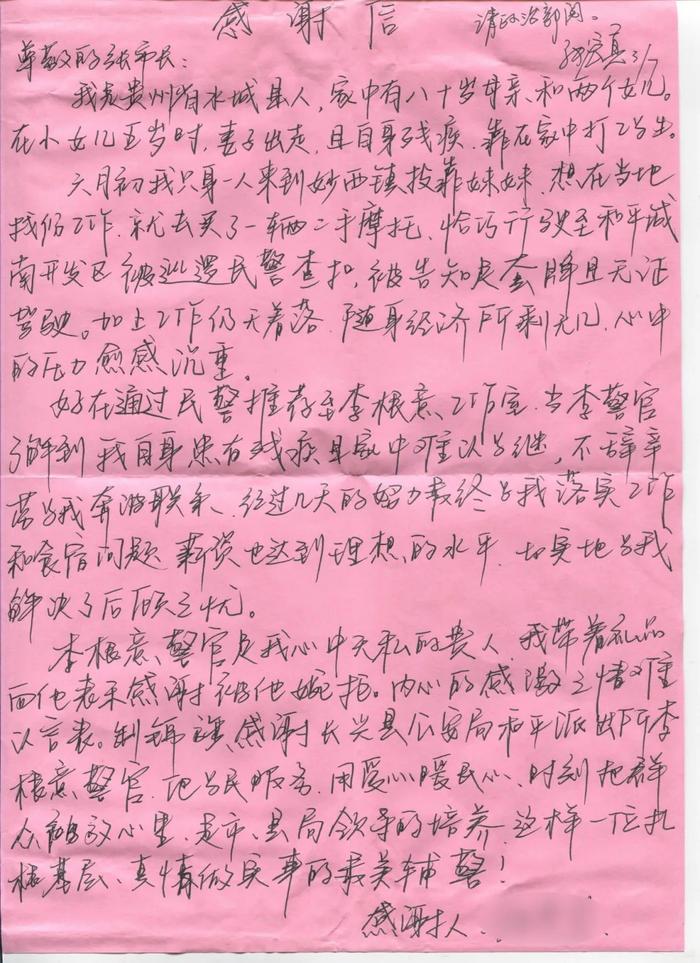 感谢信
请政治部阅。
3/7
尊敬的张市长:
我是贵州省水城县人,家中有八十岁母亲、和两个女儿。
在小女儿五岁时,妻子出走,且自身残疾,靠在家中打工为生。
六月初我只身一人来到妙西镇投靠妹妹,想在当地
找份工作,就去买了一辆二手摩托,恰巧行驶至和平城
南开发区被巡逻民警查扣,被告知是套牌且无证
驾驶。加上工作仍无着落,随身经济所剩无几,心中
的压力愈感沉重。
好在通过民警推荐至李根意工作室,当李警官
了解到我自身患有残疾且家中难以为继,不辞辛
劳为我奔波联系、经过几天的努力最终为我落实工作
和食宿问题,薪资也达到理想的水平,切实地为我
解决了后顾之忧。
李根意警官是我心中无私的贵人,我带着礼品
向他表示感谢被他婉拒。内心的感激之情难
以言表。特感谢长兴县公安局和平派出所李
根意警官,他为民服务,用爱心暖民心,时刻把群
众放心里,是市、县局领导的培养,这样一位扎
根基层、真情做实事的最美辅警!
感谢人